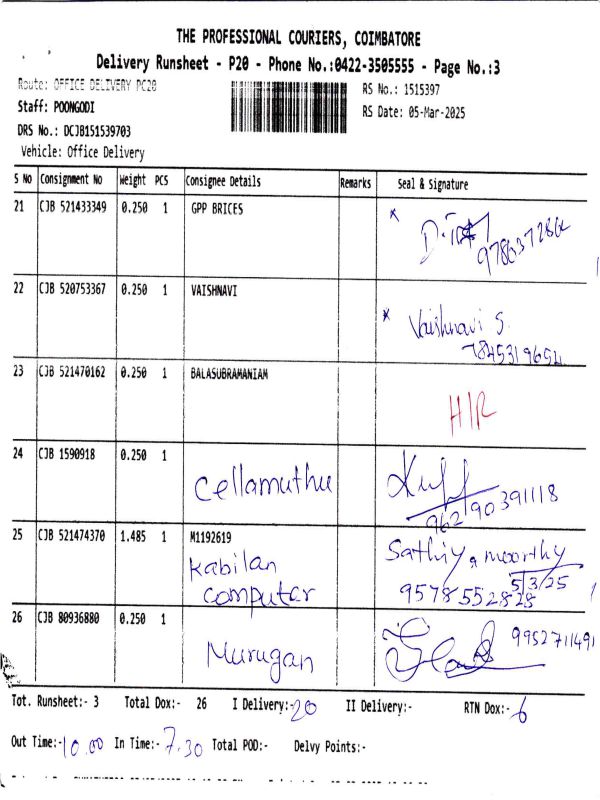 THE PROFESSIONAL COURIERS, COIMBATORE
Delivery Runsheet - P20 - Phone No.:0422-3505555 - Page No.:3
Route: OFFICE DELIVERY PC20
RS No.: 1515397
Staff: POONGODI
RS Date: 05-Mar-2025
DRS No.: DCJB151539703
Vehicle: Office Delivery
S No Consignment No Weight PCS Consignee Details Remarks Seal & Signature
21 CJB 521433349 0.250 1 GPP BRICES
22 CJB 520753367 0.250 1 VAISHNAVI
Vaishnavi S.
7845319654
23 CJB 521470162 0.250 1 BALASUBRAMANIAM
H/R
24 CJB 1590918 0.250 1
Cellamuthu
96290391118
25 CJB 521474370 1.485 1 M1192619
Kabilan
computer
Sathiya moorthy
5/3/25
26 CJB 80936880 0.250 1
Murugan
9952711491
Tot. Runsheet:- 3 Total Dox:- 26 I Delivery:-20 II Delivery:- RTN Dox:-6
Out Time:-10.00 In Time:-7.30 Total POD:- Delvy Points:-